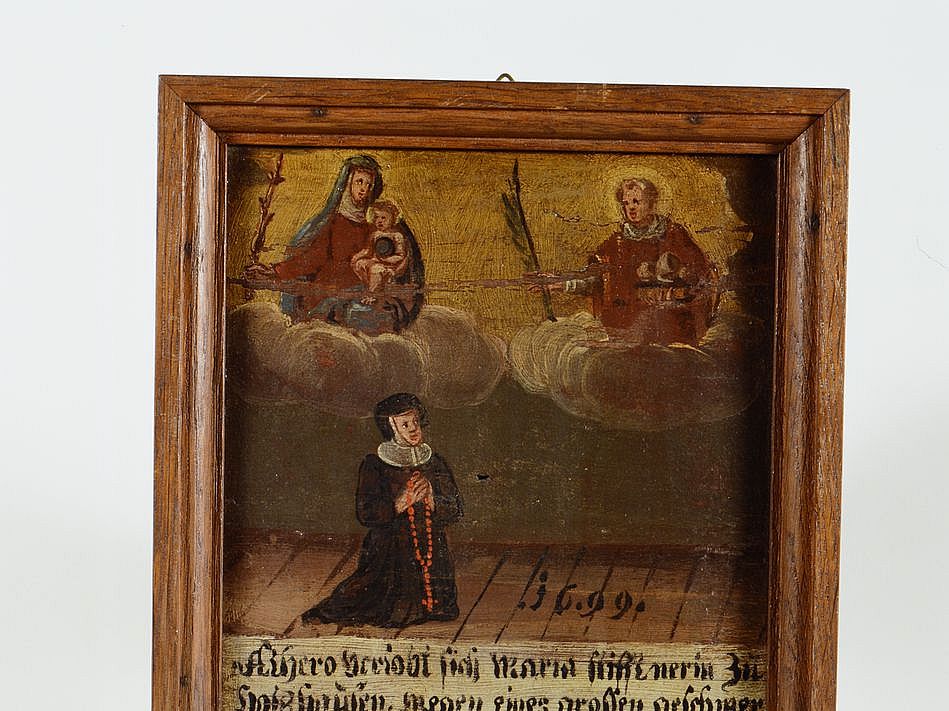 1699.
Alhero Verlobt sich Maria stifftnerin Zu
Holzhausen, Wegen eines grossen geschwer